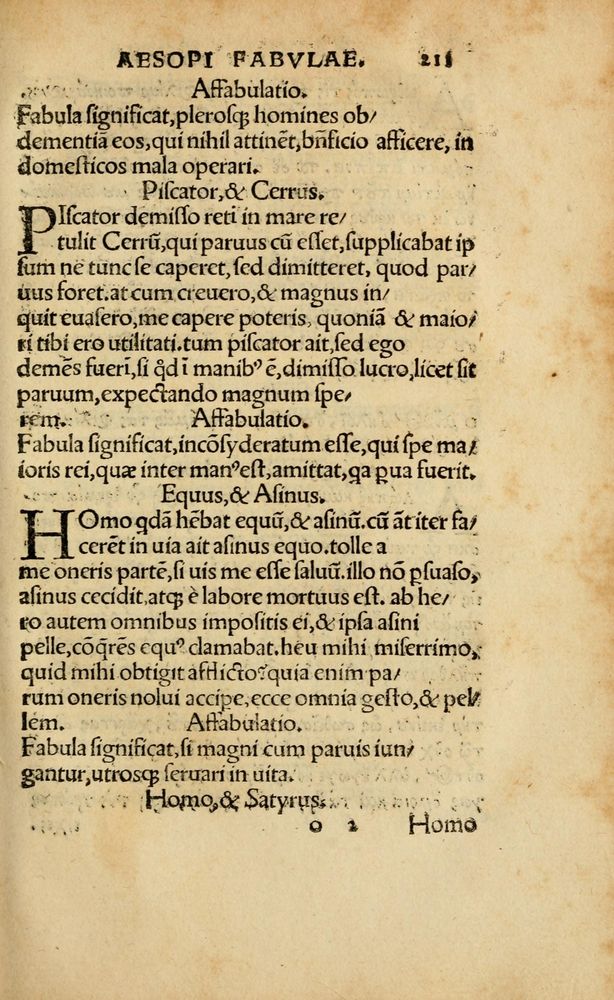 AESOPI FABVLAE. 211
Affabulatio.
Fabula ſignificat,pleroſq; homines ob/
dementiã eos,qui nihil attinẽt,bñficio afficere, in
domeſticos mala operari.
Piſcator,& Cerrus.
PIſcator demiſſo reti in mare re/
tulit Cerrũ,qui paruus cũ eſſet,ſupplicabat ip
ſum ne tunc ſe caperet,ſed dimitteret, quod par/
uus foret.at cum creuero,& magnus in/
quit euaſero,me capere poteris, quoniã & maio/
ri tibi ero utilitati.tum piſcator ait,ſed ego
demẽs fueri̅,ſi qd̓ ĩ manibꝰ ẽ,dimiſſo lucro,licet ſit
paruum,expectando magnum ſpe/
rem. Affabulatio.
Fabula ſignificat,incõſyderatum eſſe,qui ſpe ma/
ioris rei,quæ inter manꝰ eſt,amittat,qa pua fuerit.
Equus,& Aſinus.
HOmo qdã hẽbat equũ,& aſinũ.cũ ãt iter fa/
cerẽt in uia ait aſinus equo.tolle a
me oneris partẽ,ſi uis me eſſe ſaluũ.illo nõ pſuaſo,
aſinus cecidit,atq; è labore mortuus eſt. ab he/
ro autem omnibus impoſitis ei,& ipſa aſini
pelle,cõq̃rẽs equꝰ clamabat.heu mihi miſerrimo,
quid mihi obtigit afflicto?quia enim pa/
rum oneris nolui accipe,ecce omnia geſto,& pel/
lem. Affabulatio.
Fabula ſignificat,ſi magni cum paruis iun/
gantur,utroſq; ſeruari in uita.
Homo,& Satyrus.
o 2 Homo